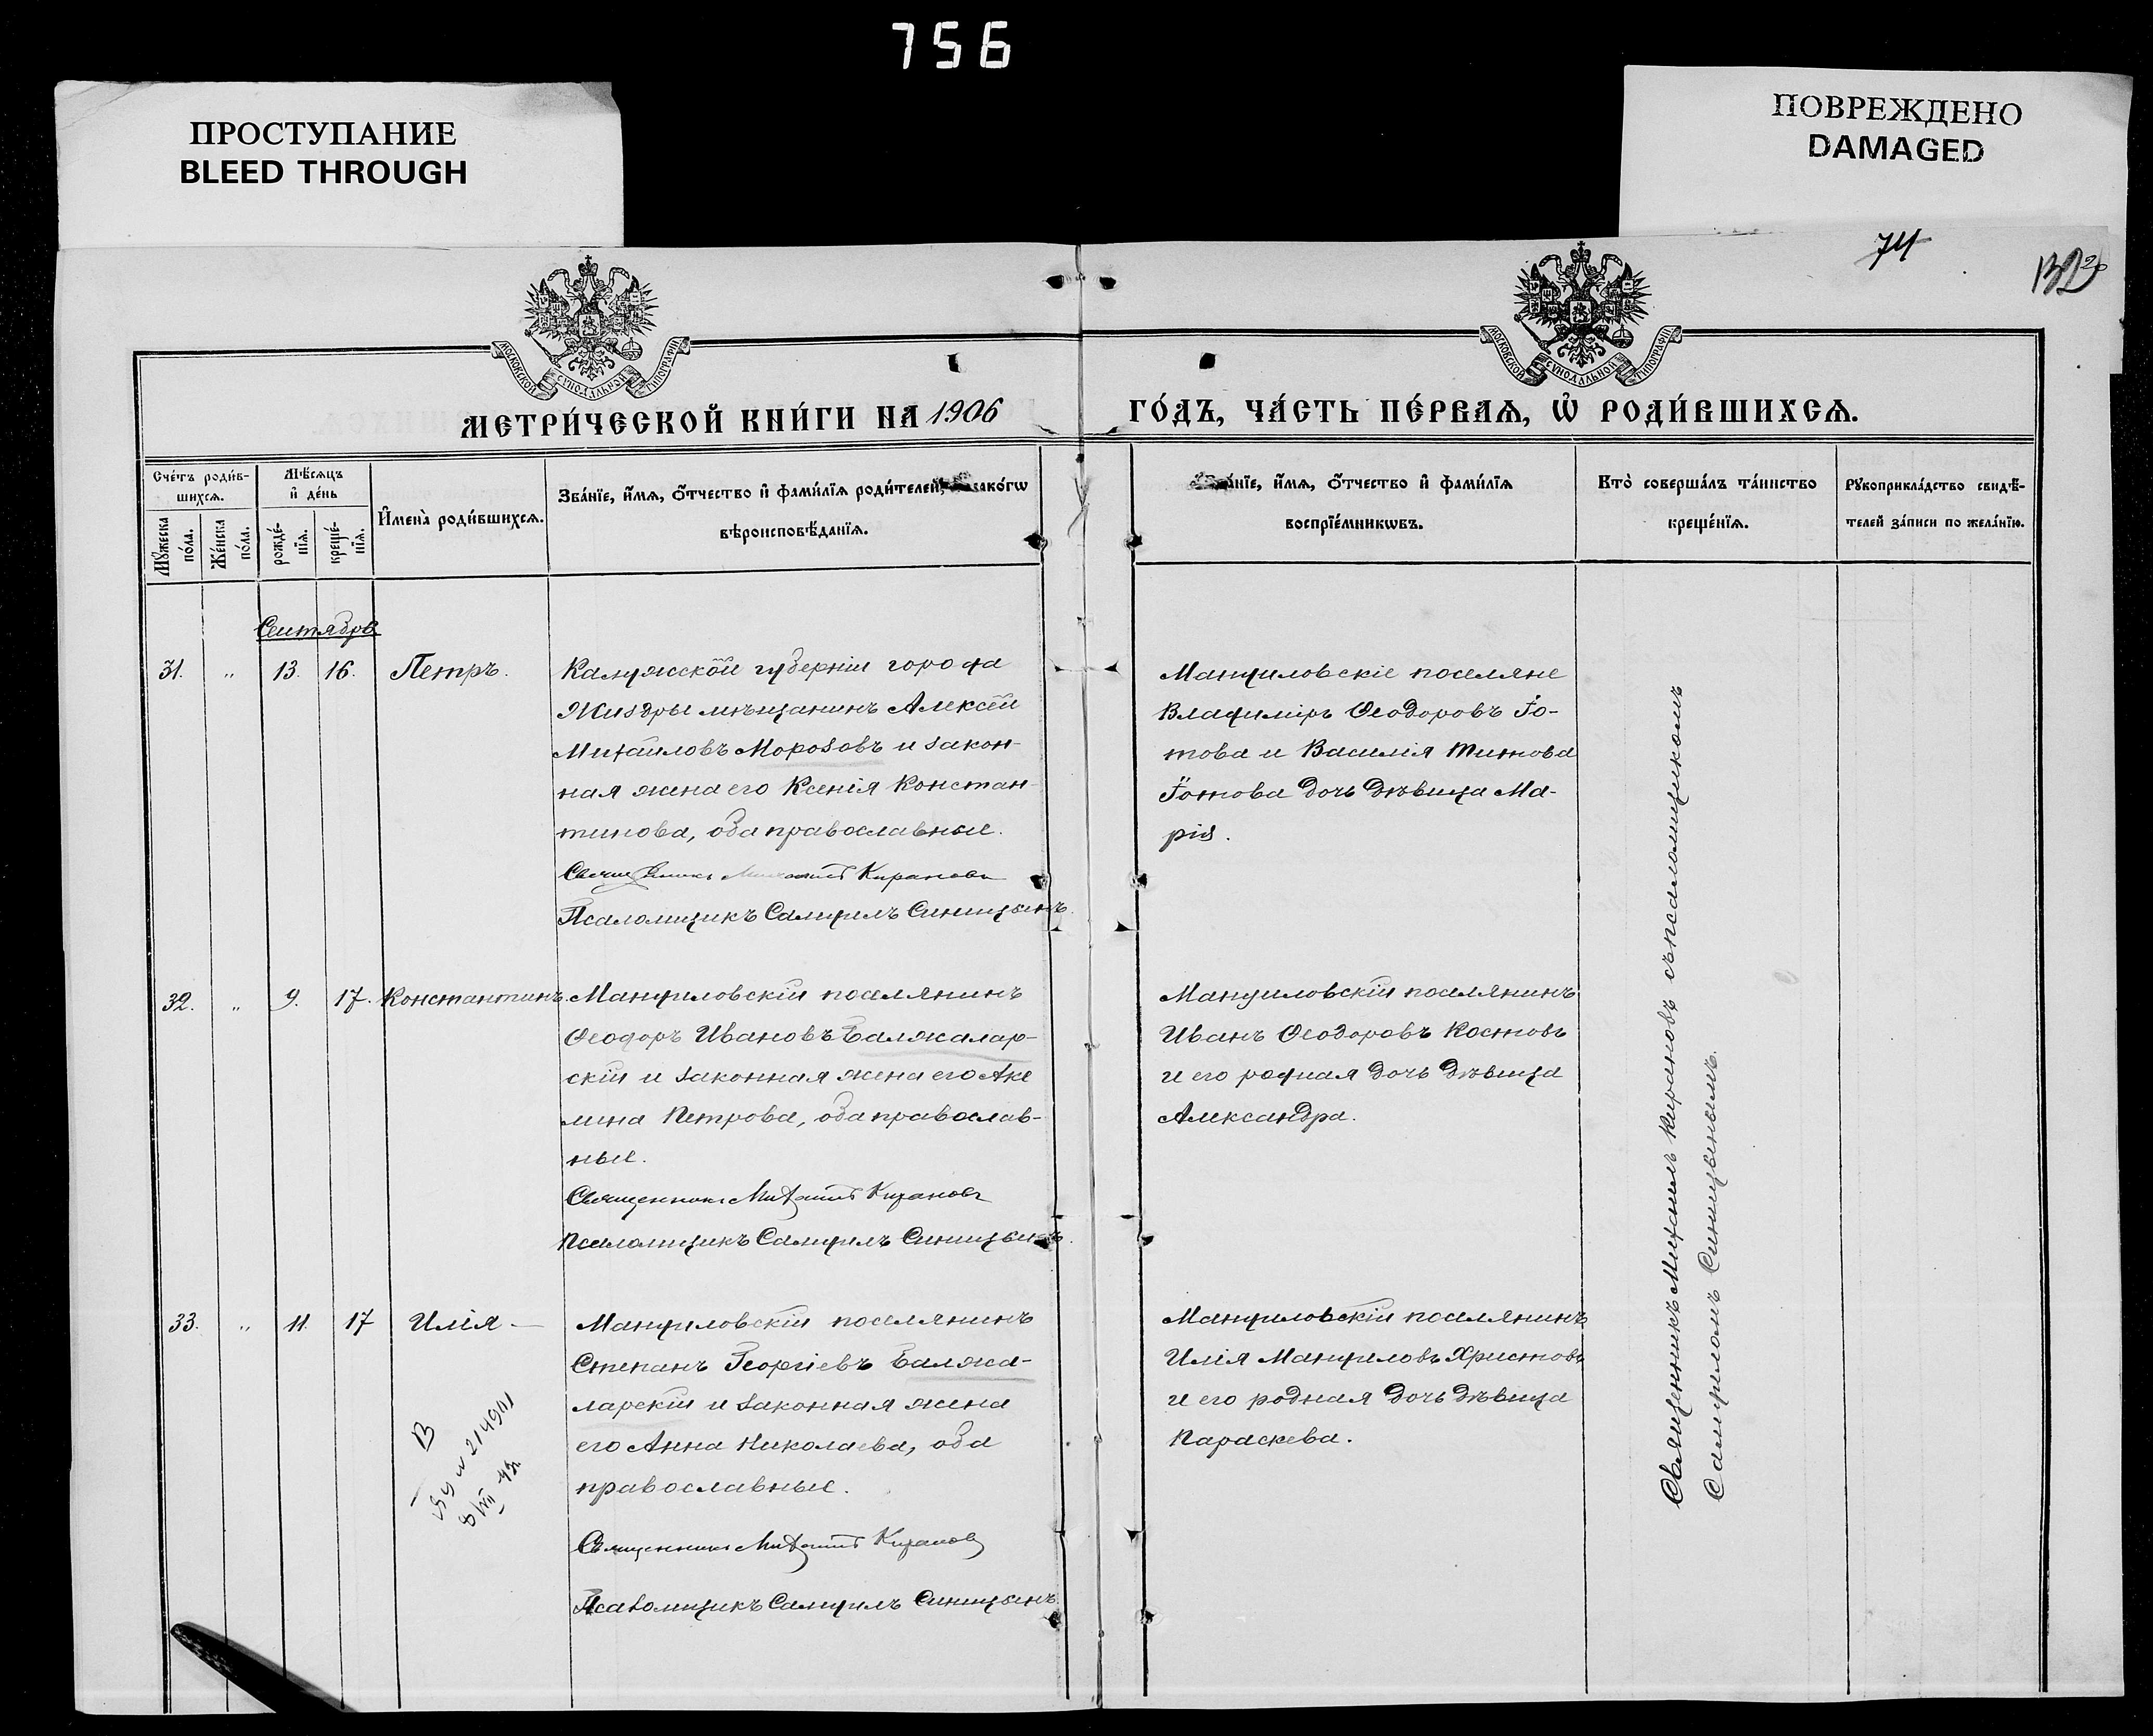 756
ПРОСТУПАНИЕ
BLEED THROUGH
ПОВРЕЖДЕНО
DAMAGED
74
132
МОСКОВСКОЙ СѴНОДАЛЬНОЙ ТИПОГРАФІИ
МОСКОВСКОЙ СѴНОДАЛЬНОЙ ТИПОГРАФІИ
МЕТРИ́ЧЕСКОЙ КНИ́ГИ НА 1906 ГО́ДЪ, ЧА́СТЬ ПЕ́РВАѦ, Ѡ҆ РОДИ́ВШИХСѦ.
Сче́тъ роди́в-
шихсѧ.
Мꙋ́жеска
по́ла.
Же́нска
по́ла.
Мѣ́сѧцъ
и҆ де́нь
рожде́-
нїѧ.
креще́-
нїѧ.
И҆мена̀ роди́вшихсѧ.
Зва́нїе, и҆́мѧ, ѻ҆́тчество и҆ фами́лїѧ роди́телей, како́гѡ
вѣроисповѣ́данїѧ.
Зва́нїе, и҆́мѧ, ѻ҆́тчество и҆ фами́лїѧ
воспрїе́мникѡвъ.
Кто̀ соверша́лъ та́инство
креще́нїѧ.
Рꙋкоприкла́дство свидѣ́-
телей за́писи по жела́нїю.
Сентября
31. " 13. 16. Петръ.
Калужской губерніи города
Жиздры мѣщанинъ Алексѣй
Михайловъ Морозовъ и закон-
ная жена его Ксенія Констан-
тинова, оба православные.
Священникъ Михаилъ Кирановъ
Псаломщикъ Самуилъ Синицынъ.
Мануиловскіе поселяне
Владиміръ Ѳеодоровъ Го-
това и Василія Титова
Готова дочь дѣвица Ма-
рія.
32. " 9. 17. Константинъ.
Мануиловскій поселянинъ
Ѳеодоръ Ивановъ Балжалар-
скій и законная жена его Аке
лина Петрова, оба православ-
ные.
Священникъ Михаилъ Кирановъ
Псаломщикъ Самуилъ Синицынъ.
Мануиловскій поселянинъ
Иванъ Ѳеодоровъ Костовъ
и его родная дочь дѣвица
Александра.
33. " 11. 17 Илія —
Мануиловскій поселянинъ
Степанъ Георгіевъ Балжа-
ларскій и законная жена
его Анна Николаева, оба
православные.
Священникъ Михаилъ Кирановъ
Псаломщикъ Самуилъ Синицынъ
В
214901
8/VII 42
Мануиловскій поселянинъ
Илія Мануиловъ Христовъ
и его родная дочь дѣвица
Параскева.
Священникъ Михаилъ Кирановъ съ псаломщикомъ
Самуиломъ Синицынымъ.